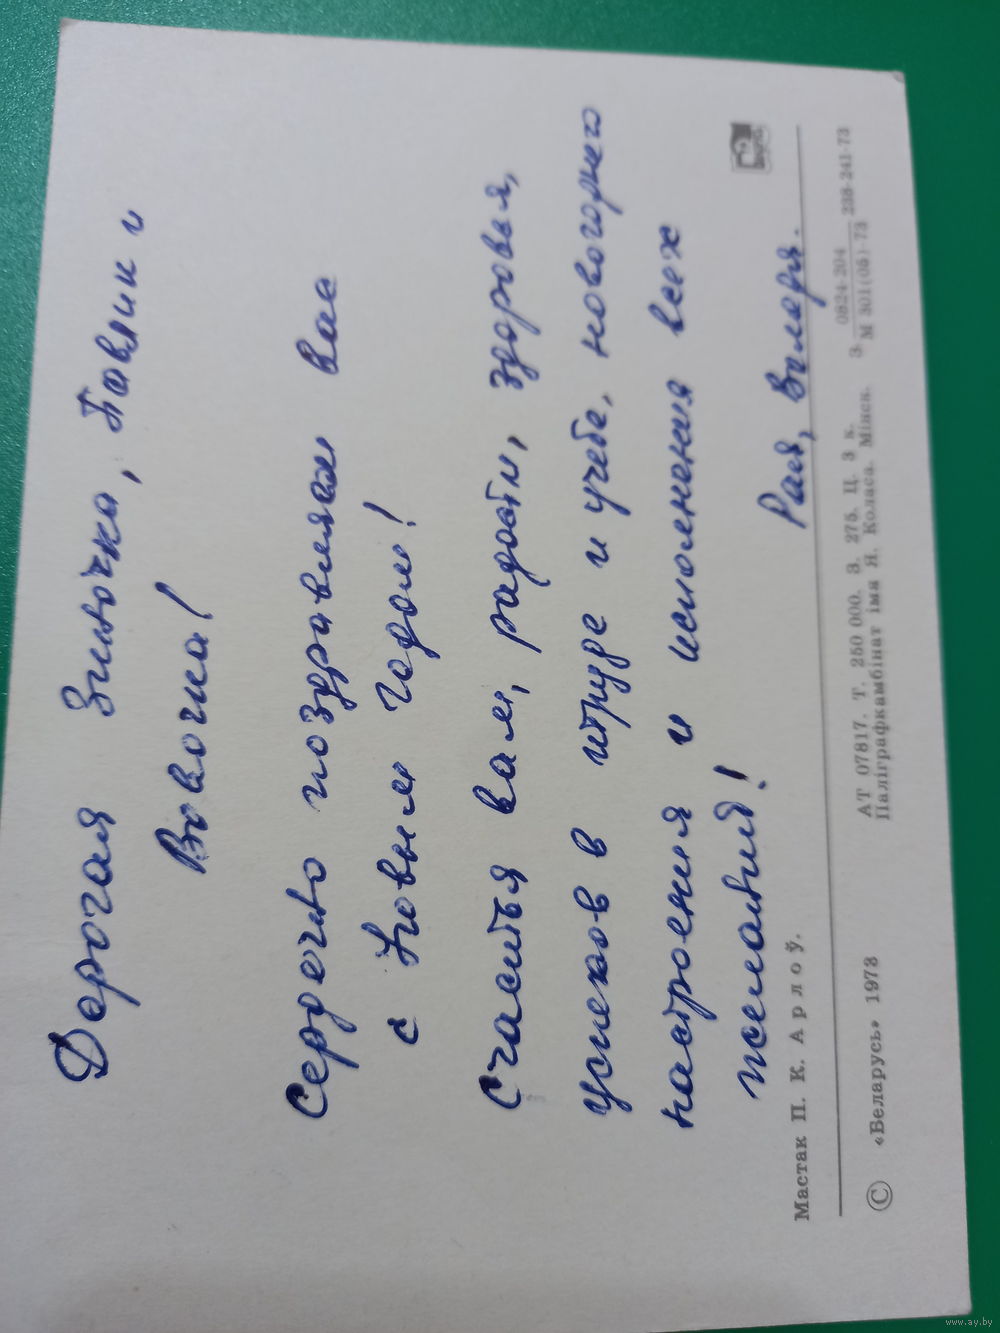 Дорогая Зиночка, Павлик и
Вовочка!
Сердечно поздравляем вас
с Новым годом!
Счастья вам, радости, здоровья,
успехов в труде и учебе, новогоднего
настроения и исполнения всех
желаний!
Рая, Володя.
Мастак П. К. Арлоў.
© «Беларусь» 1973
АТ 07817. Т. 250 000. З. 275. Ц. 3 к.
Паліграфкамбінат імя Я. Коласа. Мінск.
З 0824-204 238-241-73
М 301(05)-73
www.ay.by